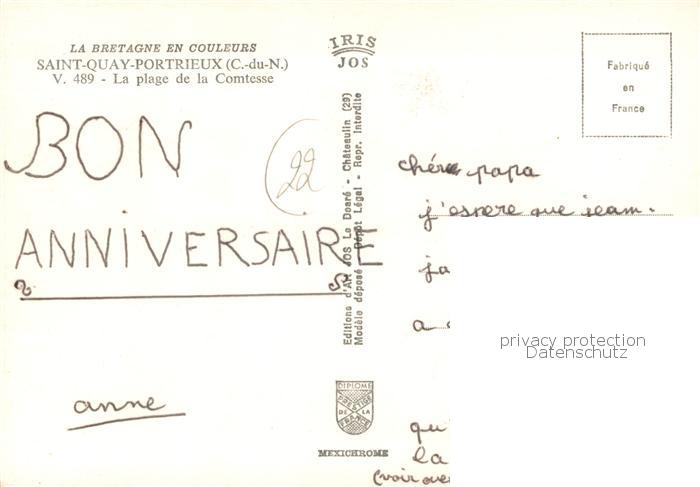 LA BRETAGNE EN COULEURS
SAINT-QUAY-PORTRIEUX (C.-du-N.)
V. 489 - La plage de la Comtesse
BON
ANNIVERSAIRE
anne
22
IRIS
JOS
Editions d'Art JOS Le Doaré - Châteaulin (29)
Modèle déposé - Dépôt Légal - Repr. Interdite
DIPLOME
PRESTIGE
DE LA
FRANCE
MEXICHROME
Fabriqué
en
France
chére papa
j'espere que jeam.
ja
a
privacy protection
Datenschutz
qu
la
(voir